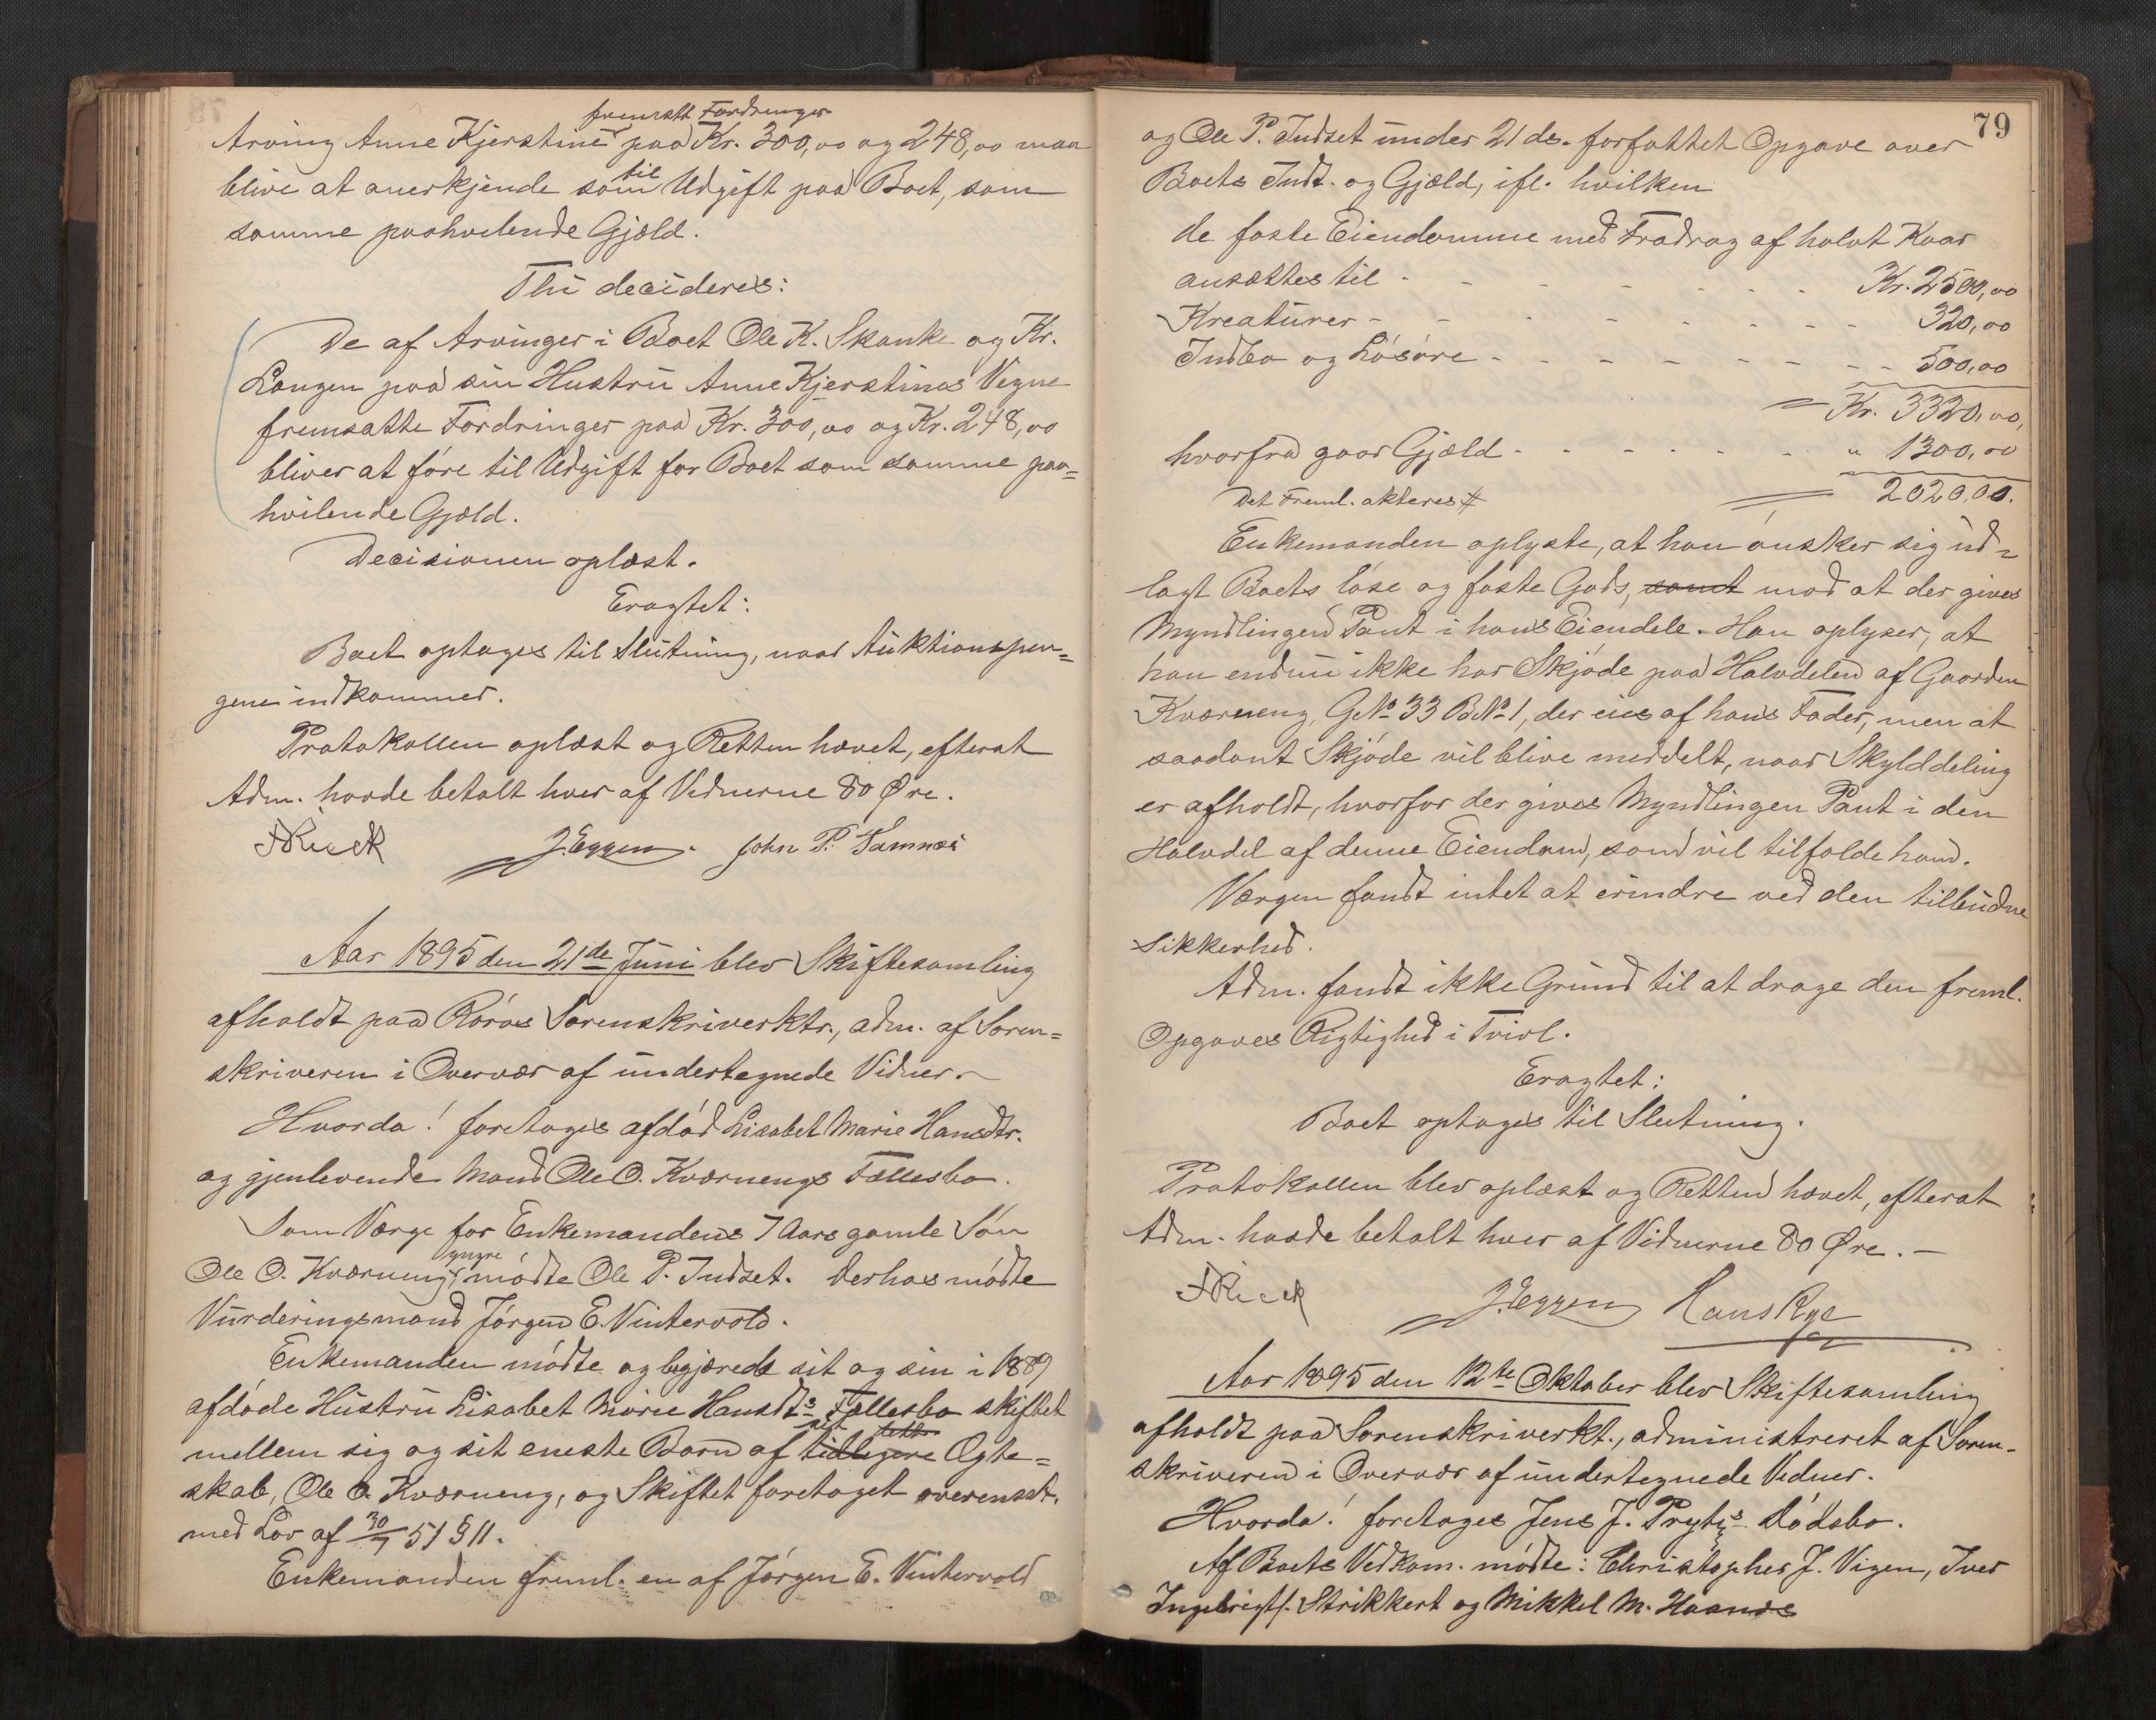 fremsatte Fordringer
Arving Anne Kjerstine paa Kr. 300,00 og 248,00 maa
til
blive at anerkjende som Udgift paa Boet, som
samme paahvilende Gjæld.
Thi decideres:
De af Arvinger i Boet Ole K. Skanke og Kr.
Langen paa sin Hustru Anne Kjerstines Vegne
fremsatte Fordringer paa Kr. 300,00 og Kr. 248,00
bliver at føre til Udgift for Boet som samme paa=
hvilende Gjæld.
Decisionen oplæst.
Eragtet:
Boet optages til Slutning, naar Auktionspen=
gene indkommer.
Protokollen oplæst og Retten hævet, efterat
Adm. havde betalt hver af Vidnerne 80 Øre.
J. Eggen. John P. Tamnæs
Aar 1895 den 21de Juni blev Skiftesamling
afholdt paa Røros Sorenskriverktr., adm. af Soren=
skriveren i Overvær af undertegnede Vidner.
Hvorda! foretoges afdød Lisabet Marie Hansdtr.
og gjenlevende Mand Ole O. Kværnengs Fællesbo.
Som Værge for Enkemandens 7 Aars gamle Søn
yngre
Ole O. Kværneng mødte Ole P. Indset. Derhos mødte
Vurderingsmand Jørgen E. Vintervold.
Enkemanden mødte og begjærede sit og sin i 1889
afdøde Hustru Lisabet Marie Hansdts Fællesbo skiftet
sit dette
mellem sig og sit eneste Barn af tidligere Ægte=
skab, Ole O. Kværneng, og Skiftet foretaget overensst.
med Lov af 30/7 51 § 11.
Enkemanden freml. en af Jørgen E. Vintervold
79
og Ole P. Indset under 21 ds. forfattet Opgave over
Boets Indt. og Gjæld, ifl. hvilken
de faste Eiendomme med Fradrag af halvt Kaar
ansættes til - - - - - - - Kr. 2500,00
Kreaturer - - - - - - - - - 320,00
Indbo og Løsøre - - - - - - - 500,00
= Kr. 3320,00,
hvorfra gaar Gjæld - - - - - - " 1300,00
Det Freml. akteres # = 2020,00.
Enkemanden oplyste, at han ønsker sig ud=
lagt Boets løse og faste Gods, samt mod at der gives
Myndlingen Pant i hans Eiendele. Han oplyser, at
han endnu ikke har Skjøde paa Halvdelen af Gaarden
Kværneng, G.No 33 B.No 1, der eies af hans Fader, men at
saadant Skjøde vil blive meddelt, naar Skylddeling
er afholdt, hvorfor der gives Myndlingen Pant i den
Halvdel af denne Eiendom, som vil tilfalde ham.
Værgen fandt intet at erindre ved den tilbudne
Sikkerhed.
Adm. fandt ikke Grund til at drage den freml.
Opgaves Rigtighed i Tvivl.
Eragtet:
Boet optages til Slutning.
Protokollen blev oplæst og Retten hævet, efterat
Adm. havde betalt hver af Vidnerne 80 Øre. -
J. Eggen Hans Rye
Aar 1895 den 12te Oktober blev Skiftesamling
afholdt paa Sorenskriverkt., administreret af Soren-
skriveren i Overvær af undertegnede Vidner.
Hvorda! foretoges Jens J. Prytz's Dødsbo.
Af Boets Vedkom. mødte: Christopher J. Vigen, Iver
Ingebrigts. Strikkert og Mikkel M. Haanes